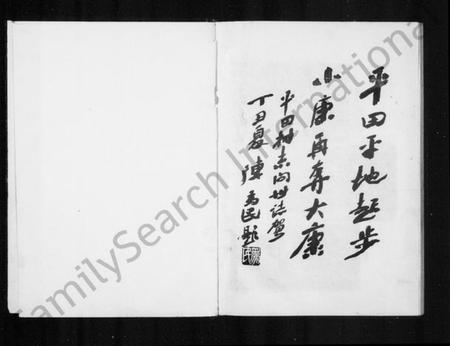 平田平地起步
小康再奔大康
平田村志问世志贺
丁丑夏 陈 题
FamilySearch International